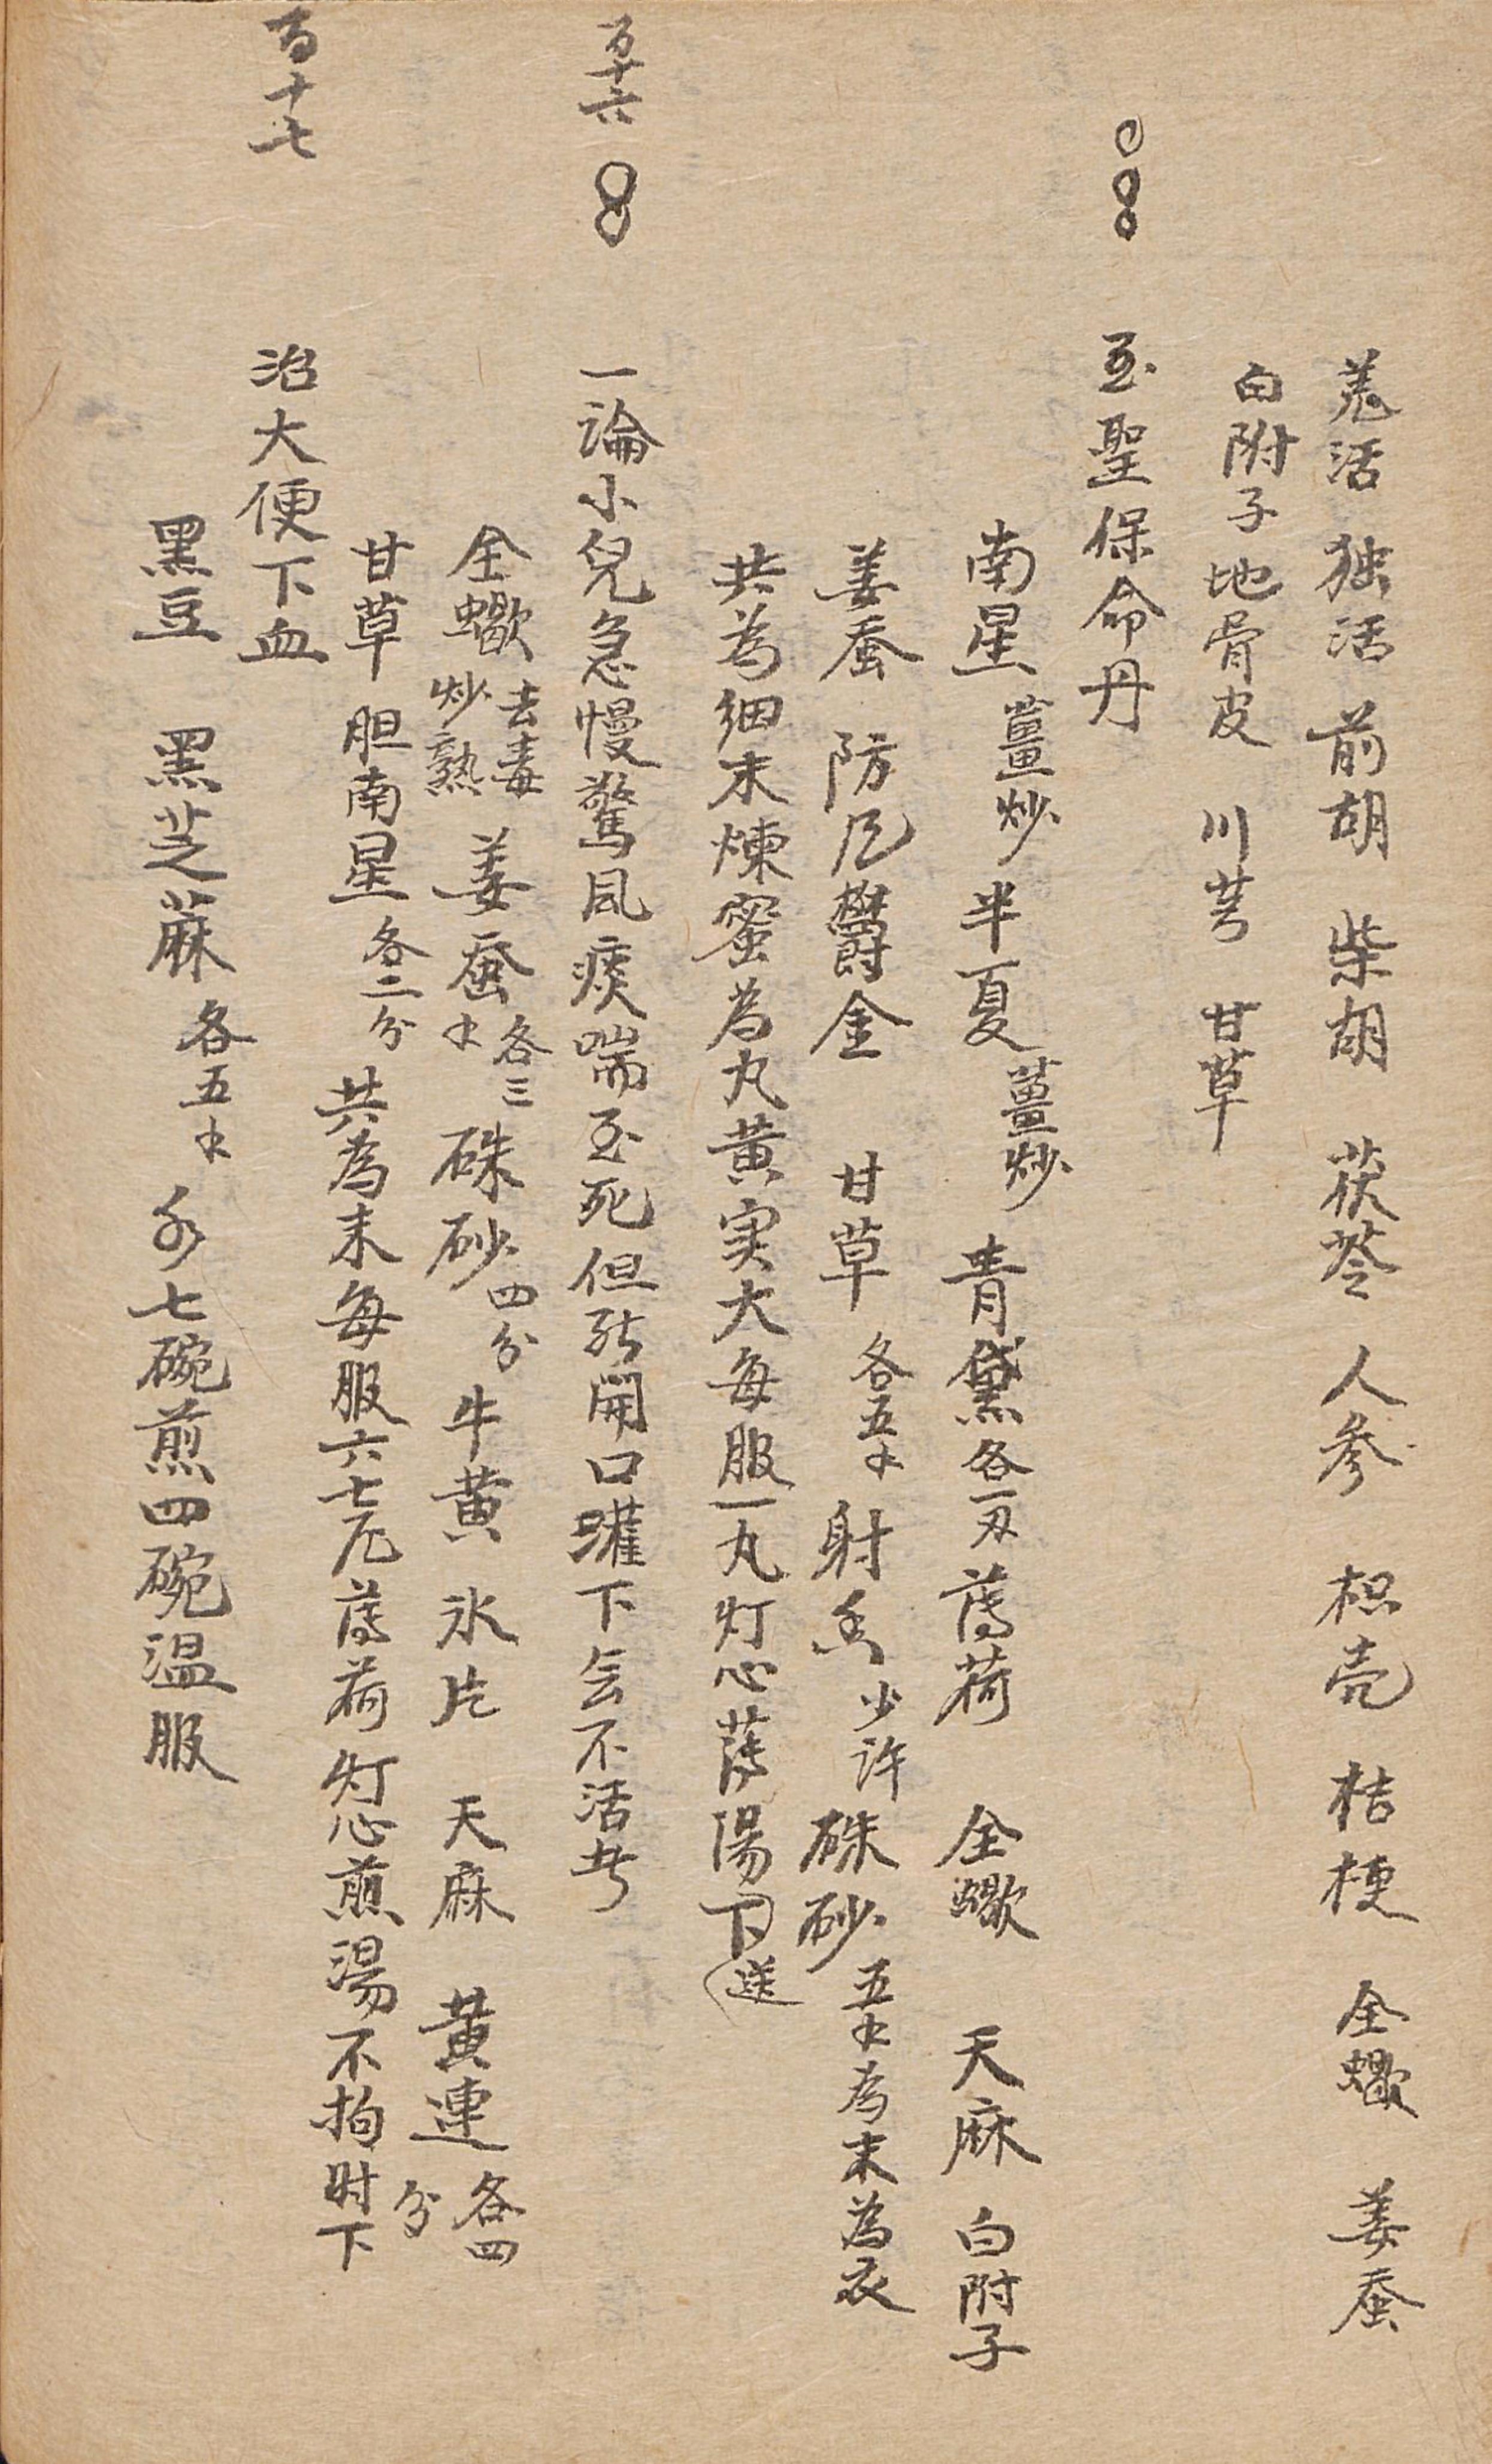 羌活 独活 前胡 柴胡 茯苓 人参 枳壳 桔梗 全蠍 姜蚕
白附子 地骨皮 川芎 甘草
至聖保命丹
南星薑炒 半夏薑炒 青黛各一刄 薄荷 全蠍 天麻 白附子
姜蚕 防风 欝金 甘草各五 射香少許 硃砂五 為末為衣
共為细末煉蜜為丸黄实大每服一丸灯心薄湯下送
百十六
一論小兒急慢驚風痰喘至死但能開口灌下会不活者
全蠍去毒炒熟 姜蚕各三 硃砂四分 牛黄 氷片 天麻 黄連各四分
甘草 胆南星各二分 共為末每服六七厘薄荷灯心煎湯不拘时下
百十七
治大便下血
黑豆 黑芝蔴各五 水七碗煎四碗温服